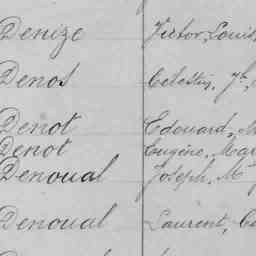 Denize Victor, Louis,
Denos Célestin, Jh,
Denot Edouard, M
Denot Eugène, Mar
Denoual Joseph, M
Denoual Laurent, Ce